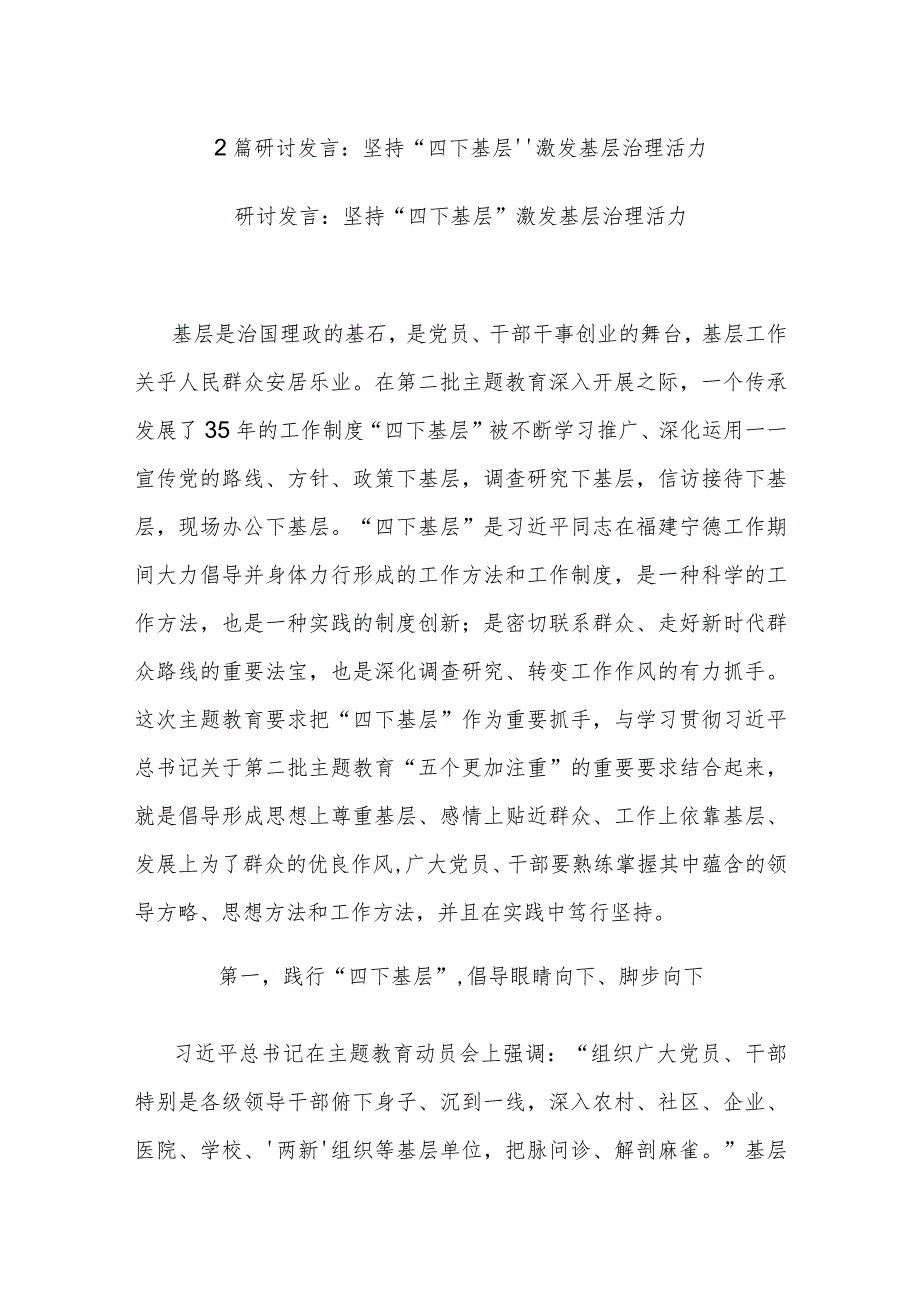 2篇研讨发言：坚持“四下基层''激发基层治理活力
研讨发言：坚持“四下基层”激发基层治理活力
基层是治国理政的基石，是党员、干部干事创业的舞台，基层工作
关乎人民群众安居乐业。在第二批主题教育深入开展之际，一个传承
发展了35年的工作制度“四下基层”被不断学习推广、深化运用一一
宣传党的路线、方针、政策下基层，调查研究下基层，信访接待下基
层，现场办公下基层。“四下基层”是习近平同志在福建宁德工作期
间大力倡导并身体力行形成的工作方法和工作制度，是一种科学的工
作方法，也是一种实践的制度创新；是密切联系群众、走好新时代群
众路线的重要法宝，也是深化调查研究、转变工作作风的有力抓手。
这次主题教育要求把“四下基层”作为重要抓手，与学习贯彻习近平
总书记关于第二批主题教育“五个更加注重”的重要要求结合起来，
就是倡导形成思想上尊重基层、感情上贴近群众、工作上依靠基层、
发展上为了群众的优良作风,广大党员、干部要熟练掌握其中蕴含的领
导方略、思想方法和工作方法，并且在实践中笃行坚持。
第一，践行“四下基层”,倡导眼睛向下、脚步向下
习近平总书记在主题教育动员会上强调：“组织广大党员、干部
特别是各级领导干部俯下身子、沉到一线，深入农村、社区、企业、
医院、学校、'两新'组织等基层单位，把脉问诊、解剖麻雀。”基层